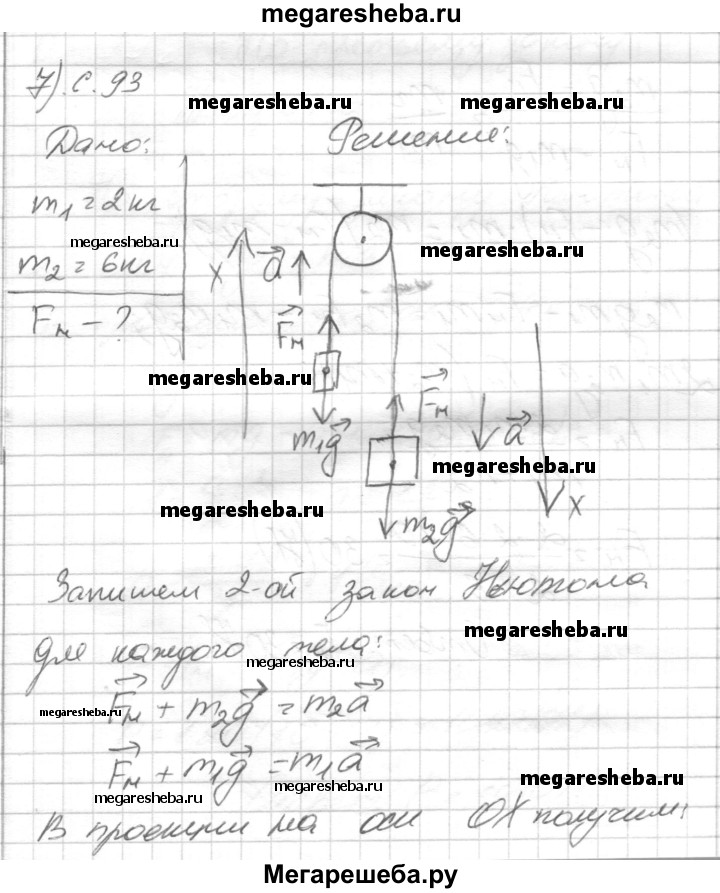 megaresheba.ru
7). с. 93
megaresheba.ru megaresheba.ru
Дано: Решение:
m₁ = 2 кг
megaresheba.ru
m₂ = 6 кг
Fн – ?
megaresheba.ru
X a⃗
F⃗н
megaresheba.ru
F⃗н
m₁g⃗ a⃗
megaresheba.ru
megaresheba.ru X
m₂g⃗
Запишем 2-ой закон Ньютона
megaresheba.ru
для каждого тела:
megaresheba.ru
F⃗н + m₂g⃗ = m₂a⃗
megaresheba.ru
F⃗н + m₁g⃗ = m₁a⃗
megaresheba.ru megaresheba.ru megaresheba.ru
В проекции на оси OX получим:
Мегарешеба.ру